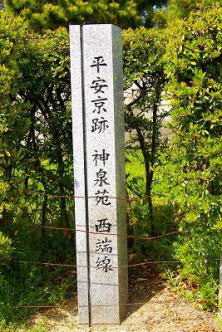 平安京跡 神泉苑 西端線